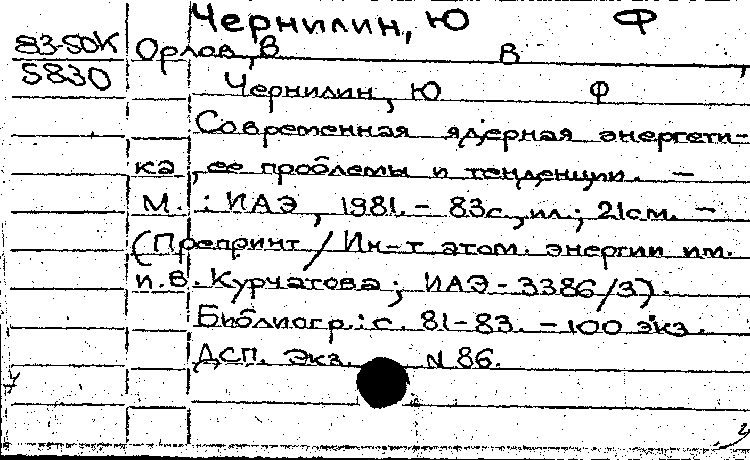 Чернилин, Ю Ф
83-50К Орлов, В В ,
5830 Чернилин, Ю Ф
Современная ядерная энергети-
ка, ее проблемы и тенденции. –
М. : ИАЭ, 1981. – 83с., ил.; 21см. –
(Препринт / Ин-т атом. энергии им.
И.В. Курчатова; ИАЭ-3386/3).
Библиогр.: с. 81-83. – 100 экз.
ДСП. Экз. N 86.